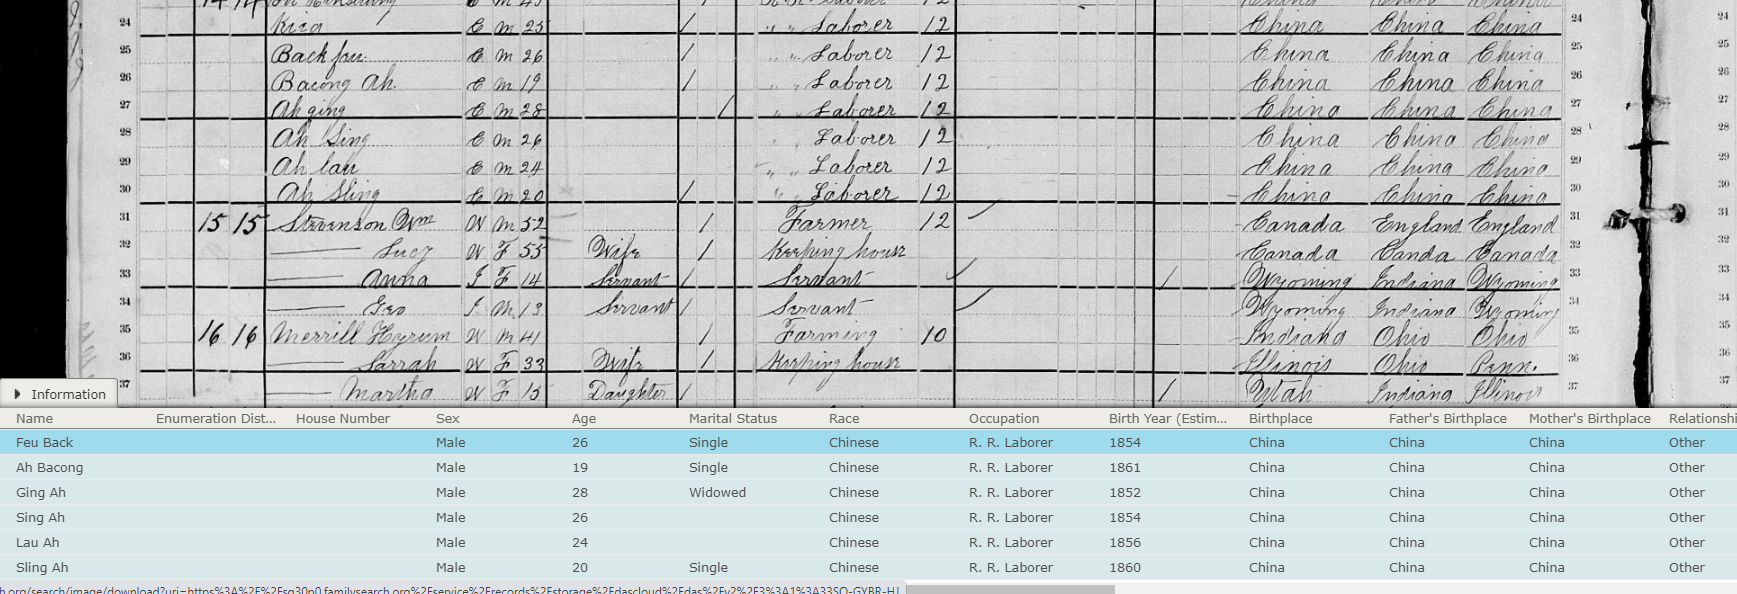 C M 45 R. R. Laborer 12 China China China
24 C M 25 / " " Laborer 12 China China China 24 24
25 Back feu C M 26 / " " Laborer 12 China China China 25 25
26 Bacong Ah. C M 19 / " " Laborer 12 China China China 26 26
27 Ah ging C M 28 / " " Laborer 12 China China China 27 27
28 Ah Sing C M 26 " " Laborer 12 China China China 28 28
29 Ah lau C M 24 " " Laborer 12 China China China 29 29
30 Ah Sling C M 20 / " " Laborer 12 China China China 30 30
31 15 15 Stevenson Wm W M 52 / Farmer 12 Canada England England 31 31
32 — Lucy W F 55 Wife / Keeping house Canada Canda Canada 32 32
33 — Anna I F 14 Servant / Servant / Wyoming Indiana Wyoming 33 33
34 — Geo I M 13 Servant / Servant Wyoming Indiana Wyoming 34 34
35 16 16 Merrill Hyrum W M 41 / Farming 10 Indiana Ohio Ohio 35 35
36 — Sarrah W F 33 Wife / Keeping house Illinois Ohio Penn. 36 36
37 — Martha W F 15 Daughter / / Utah Indiana Illinois 37 37
Information
Name Enumeration Dist... House Number Sex Age Marital Status Race Occupation Birth Year (Estim... Birthplace Father's Birthplace Mother's Birthplace Relationshi
Feu Back Male 26 Single Chinese R. R. Laborer 1854 China China China Other
Ah Bacong Male 19 Single Chinese R. R. Laborer 1861 China China China Other
Ging Ah Male 28 Widowed Chinese R. R. Laborer 1852 China China China Other
Sing Ah Male 26 Chinese R. R. Laborer 1854 China China China Other
Lau Ah Male 24 Chinese R. R. Laborer 1856 China China China Other
Sling Ah Male 20 Single Chinese R. R. Laborer 1860 China China China Other